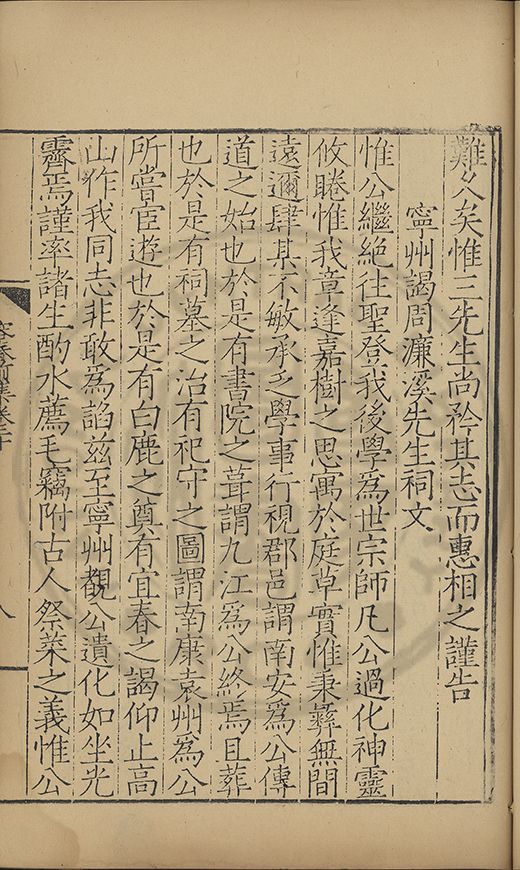 難久矣惟三先生尚矜其志而惠相之謹告
寧州謁周濂溪先生祠文
惟公繼絶往聖登我後學為世宗師凡公過化神靈
攸睠惟我章逢嘉樹之思寓於庭草實惟秉彝無間
遠邇肆某不敏承乏學事行視郡邑謂南安為公傳
道之始也於是有書院之葺謂九江為公終焉且葬
也於是有祠墓之治有祀守之圖謂南康袁州為公
所嘗宦遊也於是有白鹿之奠有宜春之謁仰止高
山作我同志非敢為諂茲至寧州觀公遺化如坐光
霽焉謹率諸生酌水薦毛竊附古人祭菜之義惟公